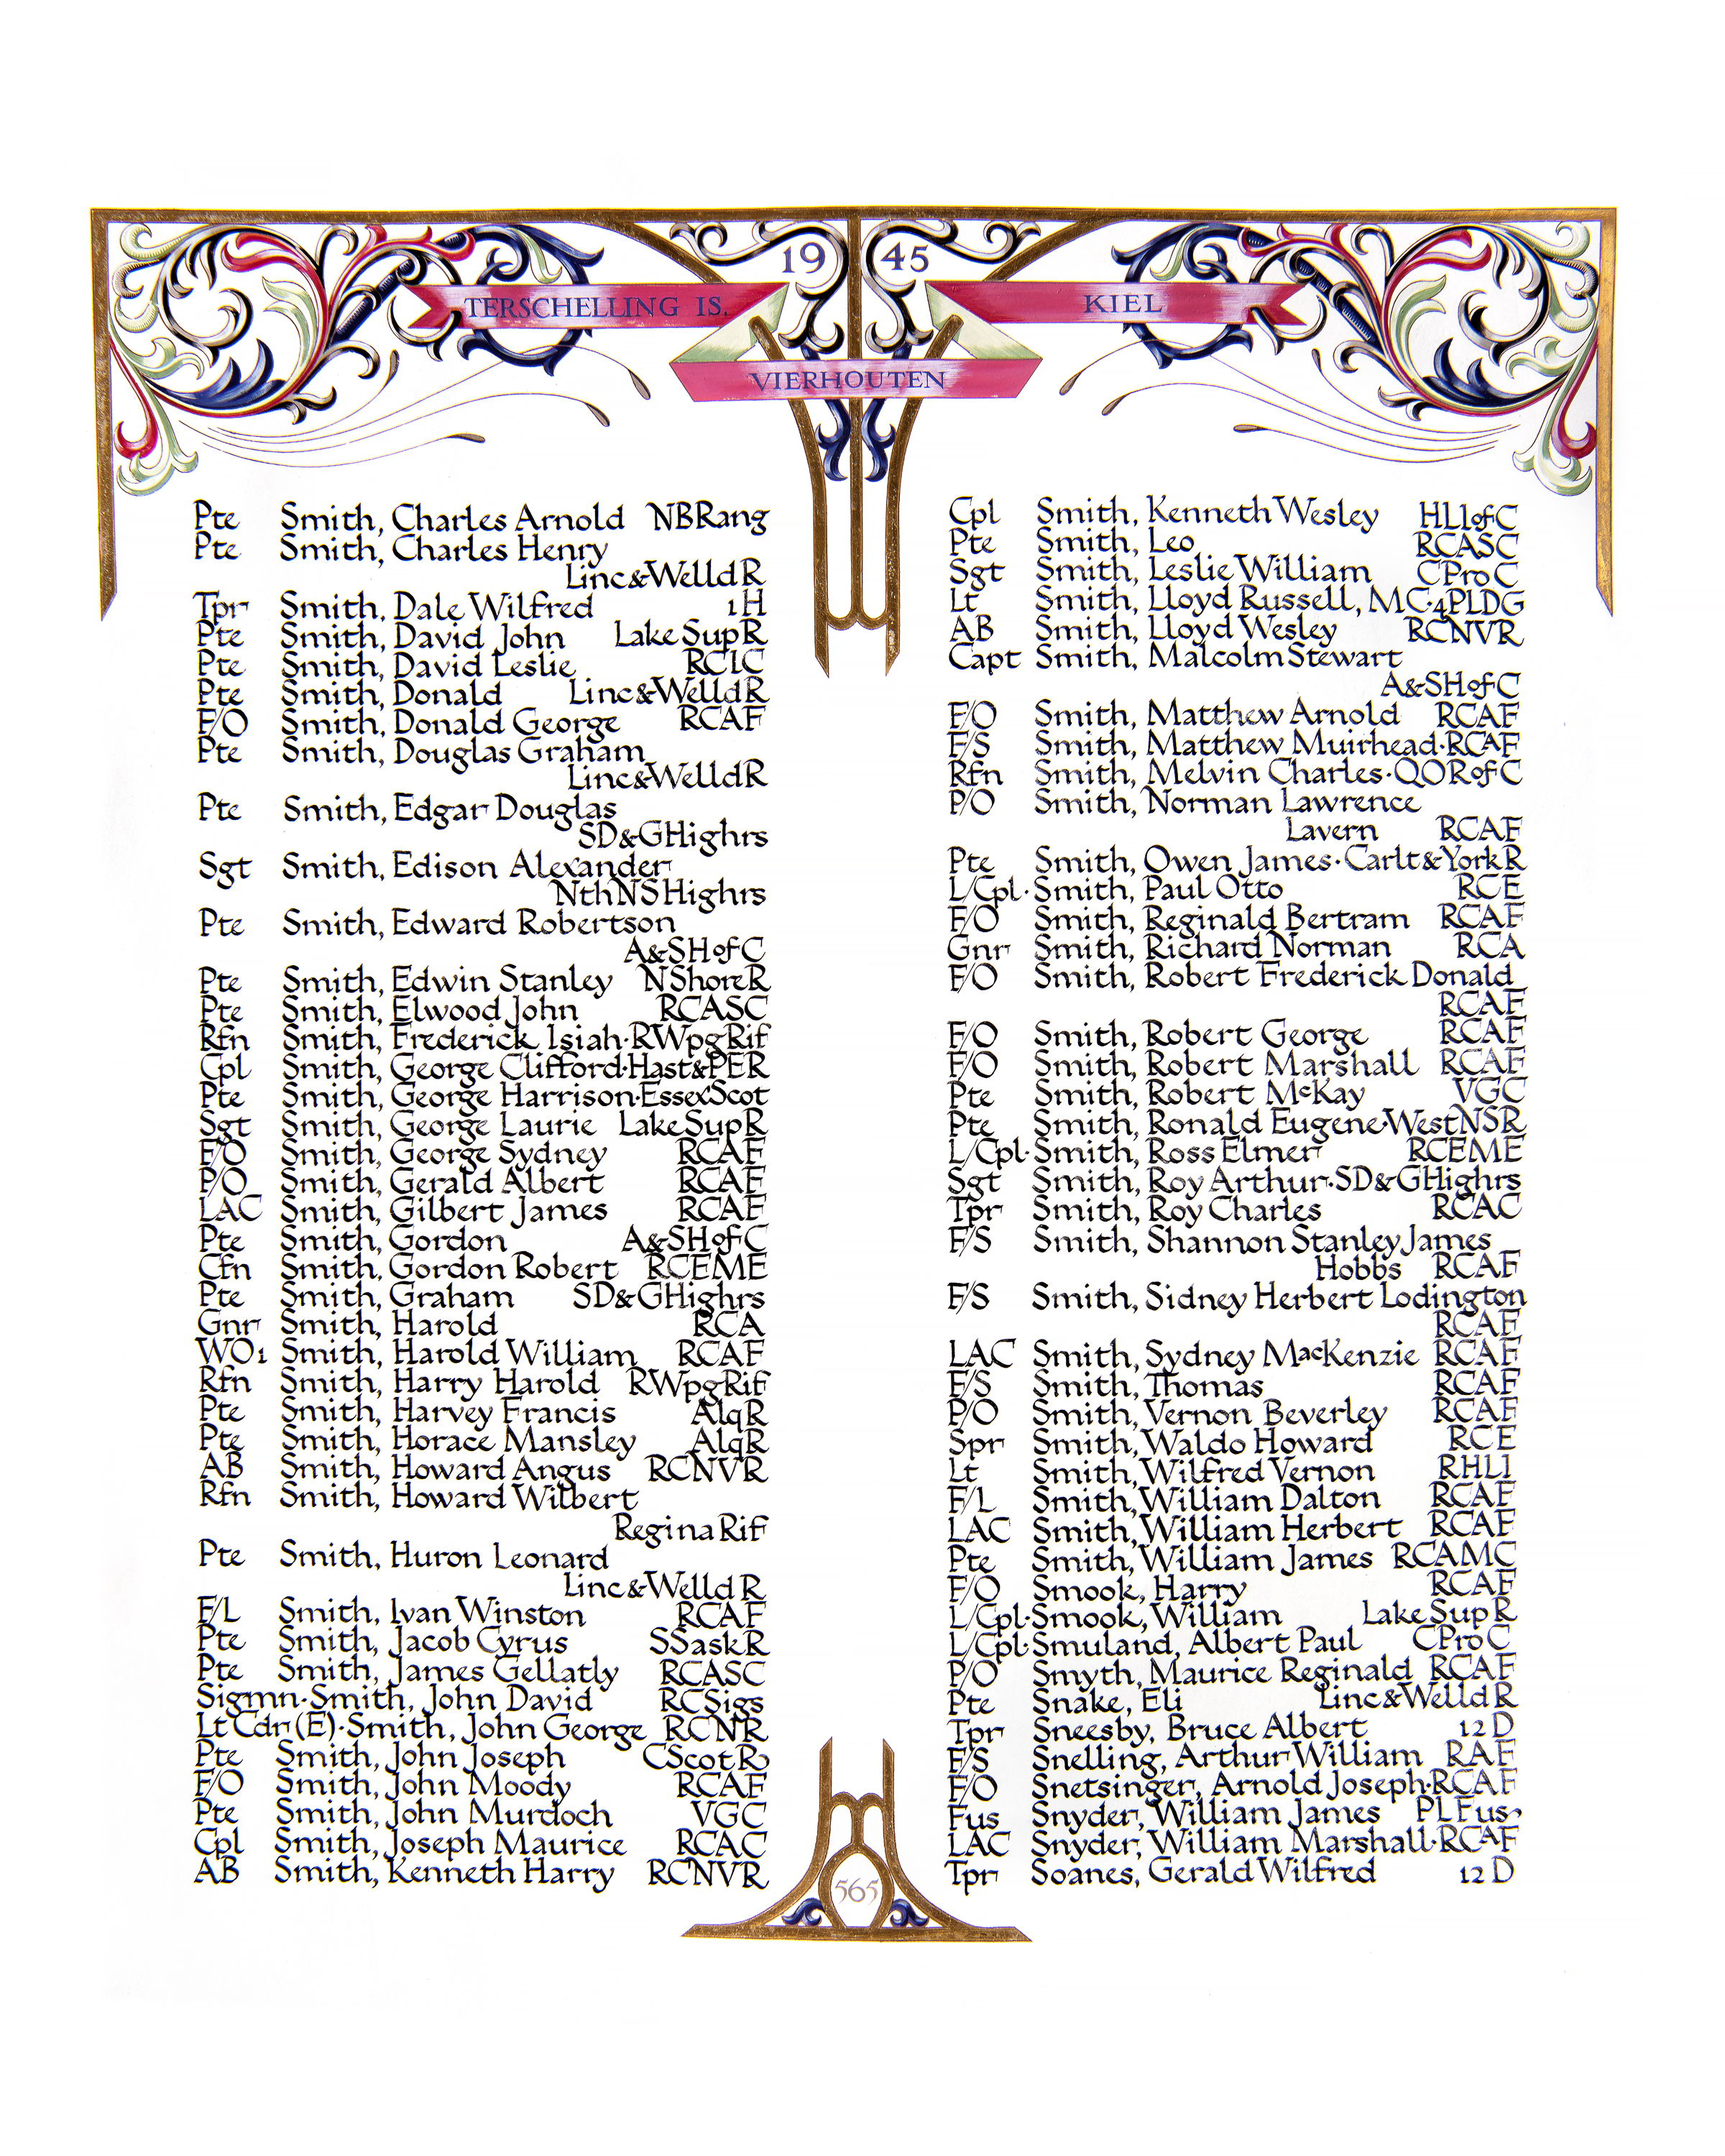 19 45
TERSCHELLING IS.
KIEL
VIERHOUTEN
Pte Smith, Charles Arnold NBRang
Pte Smith, Charles Henry
Linc&WelldR
Tpr Smith, Dale Wilfred 1H
Pte Smith, David John Lake SupR
Pte Smith, David Leslie RCIC
Pte Smith, Donald Linc&WelldR
F/O Smith, Donald George RCAF
Pte Smith, Douglas Graham
Linc&WelldR
Pte Smith, Edgar Douglas
SD&GHighrs
Sgt Smith, Edison Alexander
NthNSHighrs
Pte Smith, Edward Robertson
A&SHofC
Pte Smith, Edwin Stanley NShoreR
Pte Smith, Elwood John RCASC
Rfn Smith, Frederick Isiah·RWpgRif
Cpl Smith, George Clifford·Hast&PER
Pte Smith, George Harrison·EssexScot
Sgt Smith, George Laurie LakeSupR
F/O Smith, George Sydney RCAF
P/O Smith, Gerald Albert RCAF
LAC Smith, Gilbert James RCAF
Pte Smith, Gordon A&SHofC
Cfn Smith, Gordon Robert RCEME
Pte Smith, Graham SD&GHighrs
Gnr Smith, Harold RCA
WO1 Smith, Harold William RCAF
Rfn Smith, Harry Harold RWpgRif
Pte Smith, Harvey Francis AlqR
Pte Smith, Horace Mansley AlqR
AB Smith, Howard Angus RCNVR
Rfn Smith, Howard Wilbert
Regina Rif
Pte Smith, Huron Leonard
Linc&Welld R
F/L Smith, Ivan Winston RCAF
Pte Smith, Jacob Cyrus SSaskR
Pte Smith, James Gellatly RCASC
Sigmn·Smith, John David RCSigs
Lt Cdr (E)·Smith, John George RCNR
Pte Smith, John Joseph CScotR
F/O Smith, John Moody RCAF
Pte Smith, John Murdoch VGC
Cpl Smith, Joseph Maurice RCAC
AB Smith, Kenneth Harry RCNVR
Cpl Smith, Kenneth Wesley HLIofC
Pte Smith, Leo RCASC
Sgt Smith, Leslie William CProC
Lt Smith, Lloyd Russell, MC·4PLDG
AB Smith, Lloyd Wesley RCNVR
Capt Smith, Malcolm Stewart
A&SHofC
F/O Smith, Matthew Arnold RCAF
F/S Smith, Matthew Muirhead·RCAF
Rfn Smith, Melvin Charles·QORofC
P/O Smith, Norman Lawrence
Lavern RCAF
Pte Smith, Owen James·Carlt&YorkR
L/Cpl·Smith, Paul Otto RCE
F/O Smith, Reginald Bertram RCAF
Gnr Smith, Richard Norman RCA
F/O Smith, Robert Frederick Donald
RCAF
F/O Smith, Robert George RCAF
F/O Smith, Robert Marshall RCAF
Pte Smith, Robert McKay VGC
Pte Smith, Ronald Eugene·WestNSR
L/Cpl·Smith, Ross Elmer RCEME
Sgt Smith, Roy Arthur·SD&GHighrs
Tpr Smith, Roy Charles RCAC
F/S Smith, Shannon Stanley James
Hobbs RCAF
F/S Smith, Sidney Herbert Lodington
RCAF
LAC Smith, Sydney MacKenzie RCAF
F/S Smith, Thomas RCAF
P/O Smith, Vernon Beverley RCAF
Spr Smith, Waldo Howard RCE
Lt Smith, Wilfred Vernon RHLI
F/L Smith, William Dalton RCAF
LAC Smith, William Herbert RCAF
Pte Smith, William James RCAMC
F/O Smook, Harry RCAF
L/Cpl·Smook, William Lake Sup R
L/Cpl·Smuland, Albert Paul CProC
P/O Smyth, Maurice Reginald RCAF
Pte Snake, Eli Linc&WelldR
Tpr Sneesby, Bruce Albert 12 D
F/S Snelling, Arthur William RAF
F/O Snetsinger, Arnold Joseph·RCAF
Fus Snyder, William James PLFus
LAC Snyder, William Marshall·RCAF
Tpr Soanes, Gerald Wilfred 12 D
565